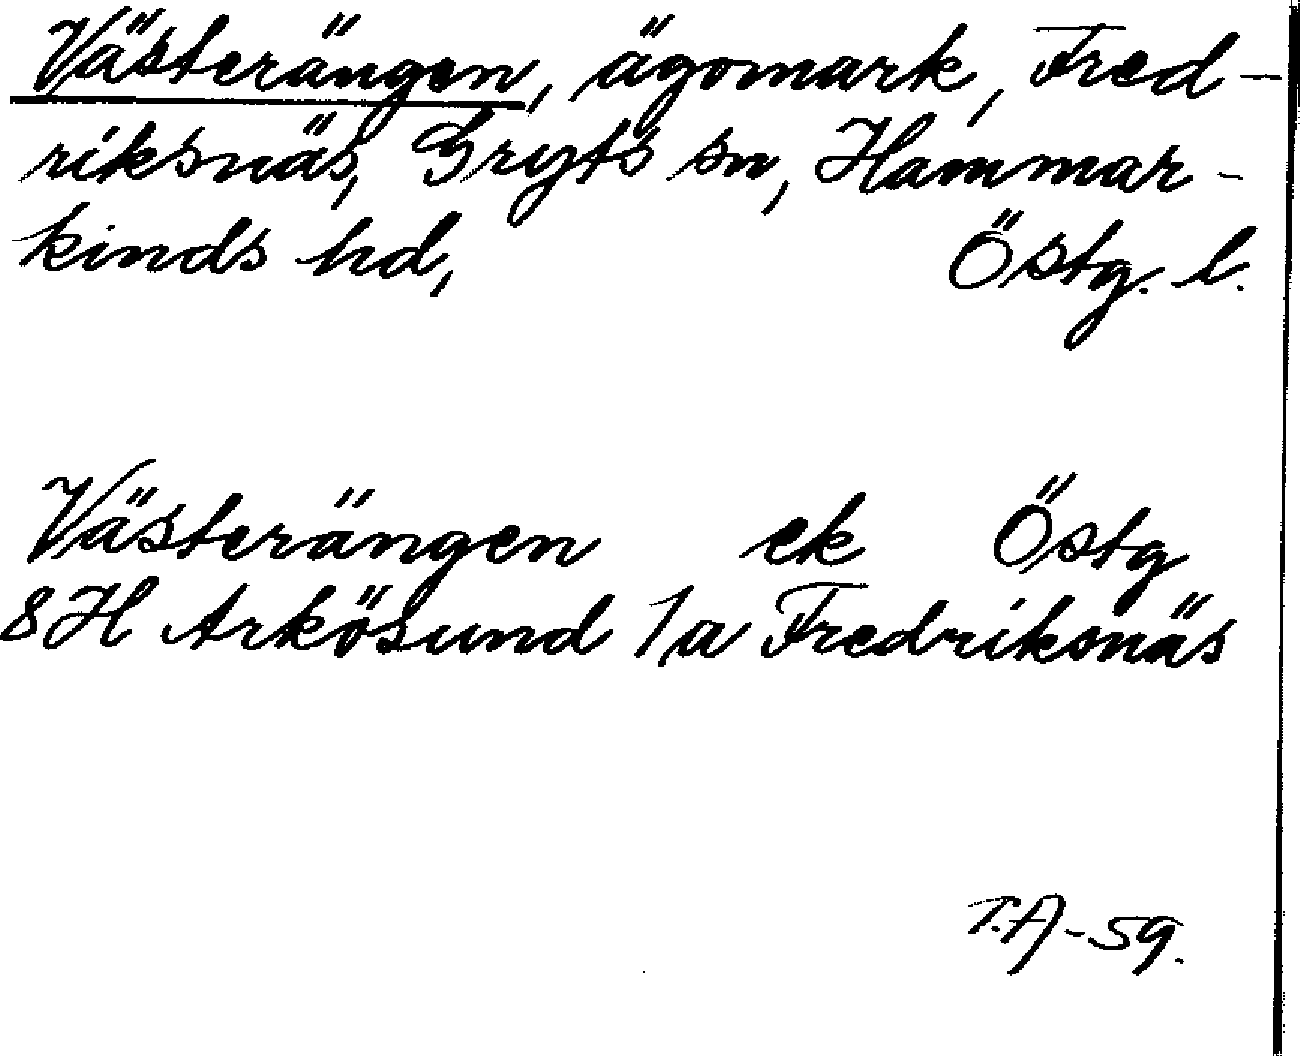 Västerängen, ägomark, Fred-
riksnäs, Gryts sn, Hammar-
kinds hd, Östg. l.
Västerängen ek Östg
8H Arkösund 1a Fredriksnäs
T.A-59.